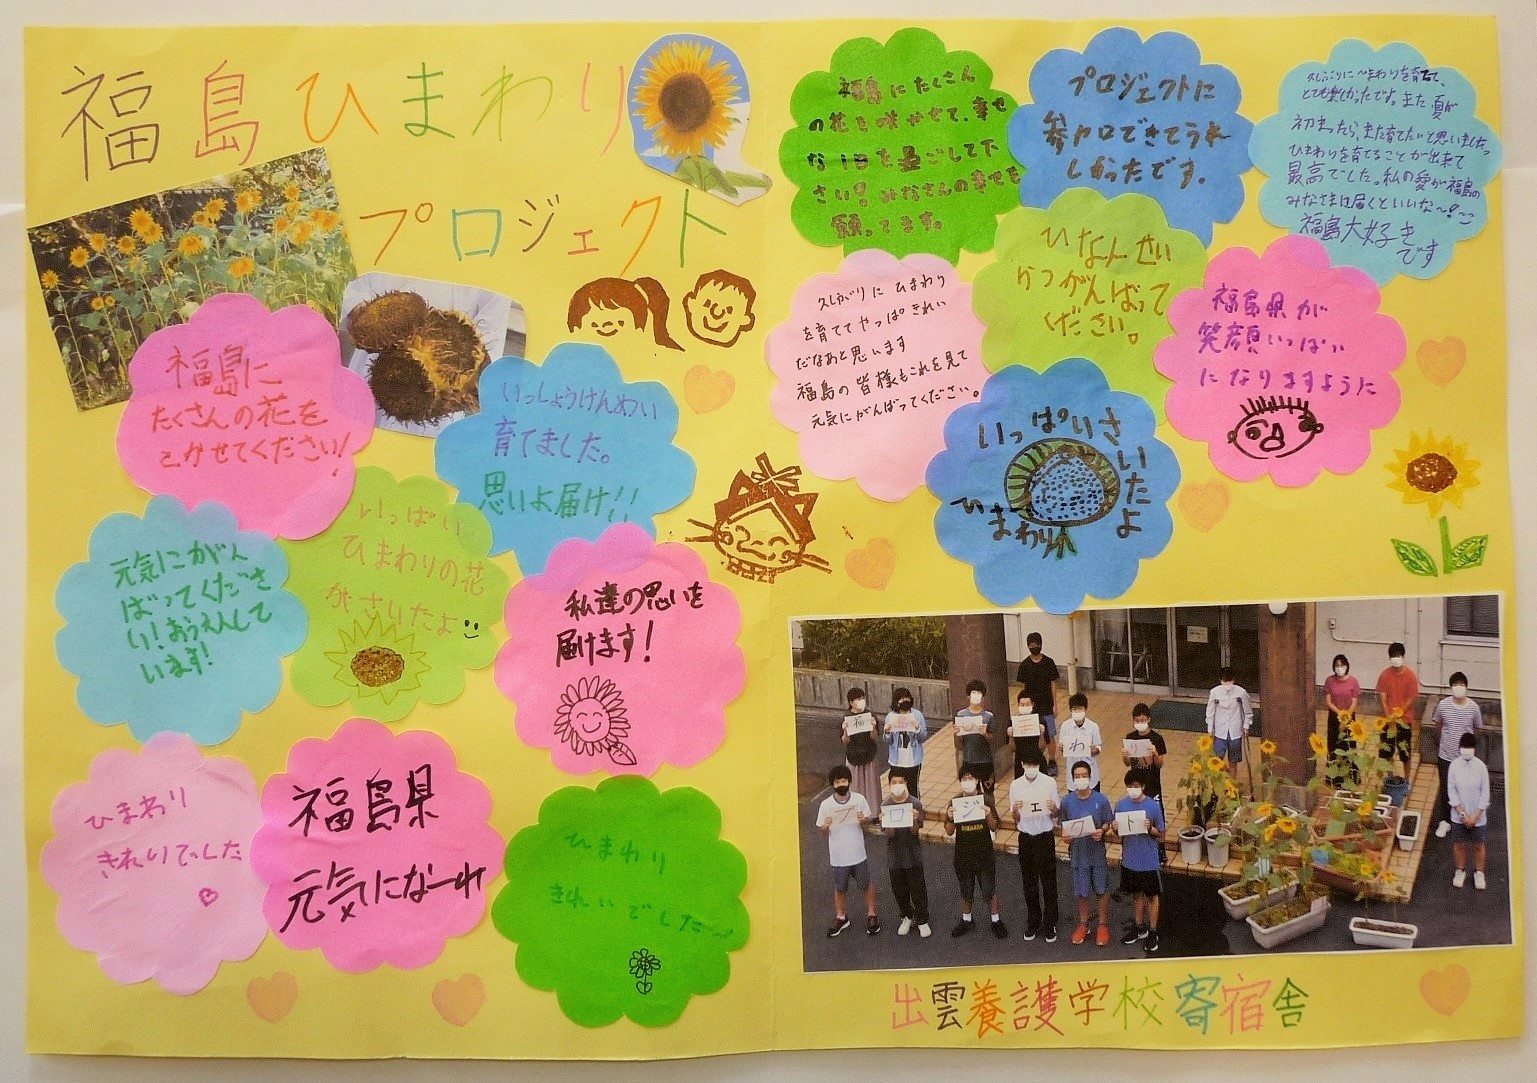 福島ひまわり
プロジェクト
福島に
たくさんの花を
こかせてください!
いっしょうけんめい
育てました。
思いよ届け!!
元気にがん
ばってくださ
い!おうえんして
います!
いっぱい
ひまわりの花
がさいたよ
私達の思いを
届けます!
ひまわり
きれいでした
福島県
元気になーれ
ひまわり
きれいでした
福島にたくさん
の花を咲かせて、幸せ
な1日を過ごして下
さい!みなさんの幸せを
願ってます。
プロジェクトに
参加できてうれ
しかったです。
久しぶりにひまわりを育てて、
とても楽しかったです。また夏が
初まったら、また育てたいと思いました
ひまわりを育てることが出来て
最高でした。私の愛が福島の
みなさまに届くといいな〜!
福島大好き
です
久しぶりにひまわり
を育ててやっぱきれい
だなあと思います
福島の皆様もこれを見て
元気にがんばってください。
ひなんせい
かつがんばって
ください。
福島県が
笑顔いっぱい
になりますように
いっぱいさいたよ
ひまわり
福 島 ひ ま わ り
プ ロ ジ ェ ク ト
出雲養護学校寄宿舎